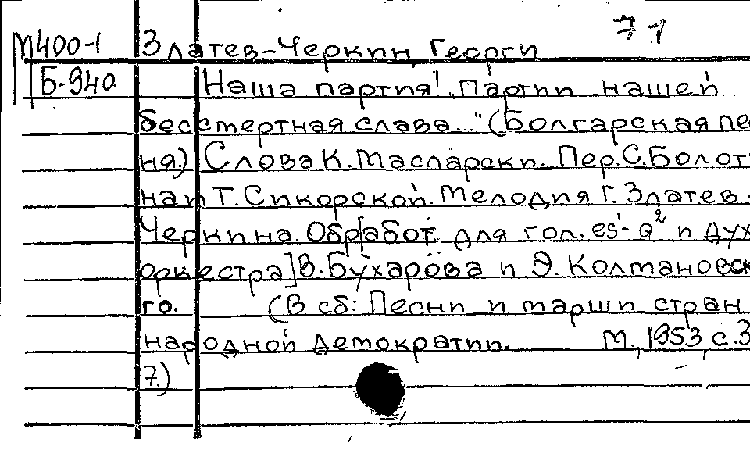 71
М400-1 Златев-Черкин, Георги
Б-940 Наша партия! „Партии нашей
бессмертная слава..." (Болгарская пе
ня) Слова К. Масларски. Пер. С. Болот
на и Т. Сикорской. Мелодия Г. Златев-
Черкина. Обр[абот. для гол. es¹-g² и дух
оркестра] В. Бухарова и Э. Колмановск
го. (В сб: Песни и марши стран
народной демократии. М., 1953, с.3
7.)